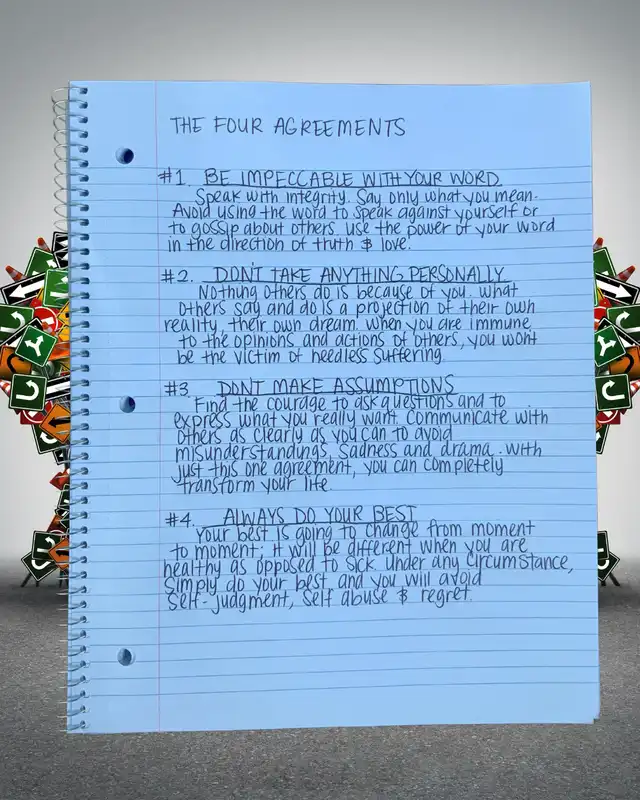 THE FOUR AGREEMENTS
#1. BE IMPECCABLE WITH YOUR WORD
Speak with integrity. Say only what you mean.
Avoid using the word to speak against yourself or
to gossip about others. Use the power of your word
in the direction of truth & love.
#2. DON'T TAKE ANYTHING PERSONALLY
Nothing others do is because of you. What
others say and do is a projection of their own
reality, their own dream. When you are immune
to the opinions and actions of others, you wont
be the victim of needless suffering.
#3 DONT MAKE ASSUMPTIONS
Find the courage to ask questions and to
express what you really want. Communicate with
others as clearly as you can to avoid
misunderstandings, sadness and drama. With
just this one agreement, you can completely
transform your life.
#4. ALWAYS DO YOUR BEST
Your best is going to change from moment
to moment; it will be different when you are
healthy as opposed to sick. Under any circumstance,
simply do your best, and you will avoid
self-judgment, self abuse & regret.